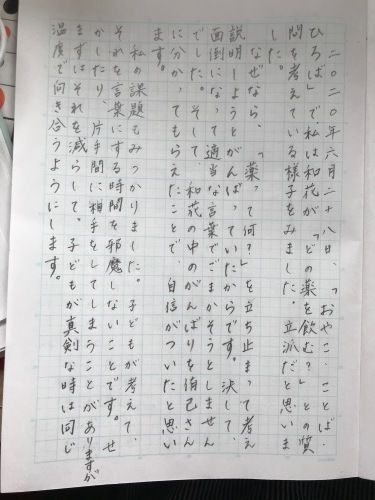 二〇二〇年六月二十八日、「おやこ・ことば・
ひろば」で私は和花が「どの薬を飲む?」との質
問を考えている様子をみました。立派だと思いま
した。
なぜなら、「薬って何?」を立ち止まって考え
説明しようとがんばっていたからです。決して、
面倒になって、適当な言葉でごまかそうとしません
でした。そして、和花の中のがんばりを伯己さん
に分かってもらえたことで、自信がついたと思い
ます。
私の課題もみつかりました。子どもが考えて、
それを言葉にする時間を邪魔しないことです。せ
かしたり、片手間に相手をしてしまうことがありますが
まずはそれを減らして。子どもが真剣な時は同じ
温度で向き合うようにします。